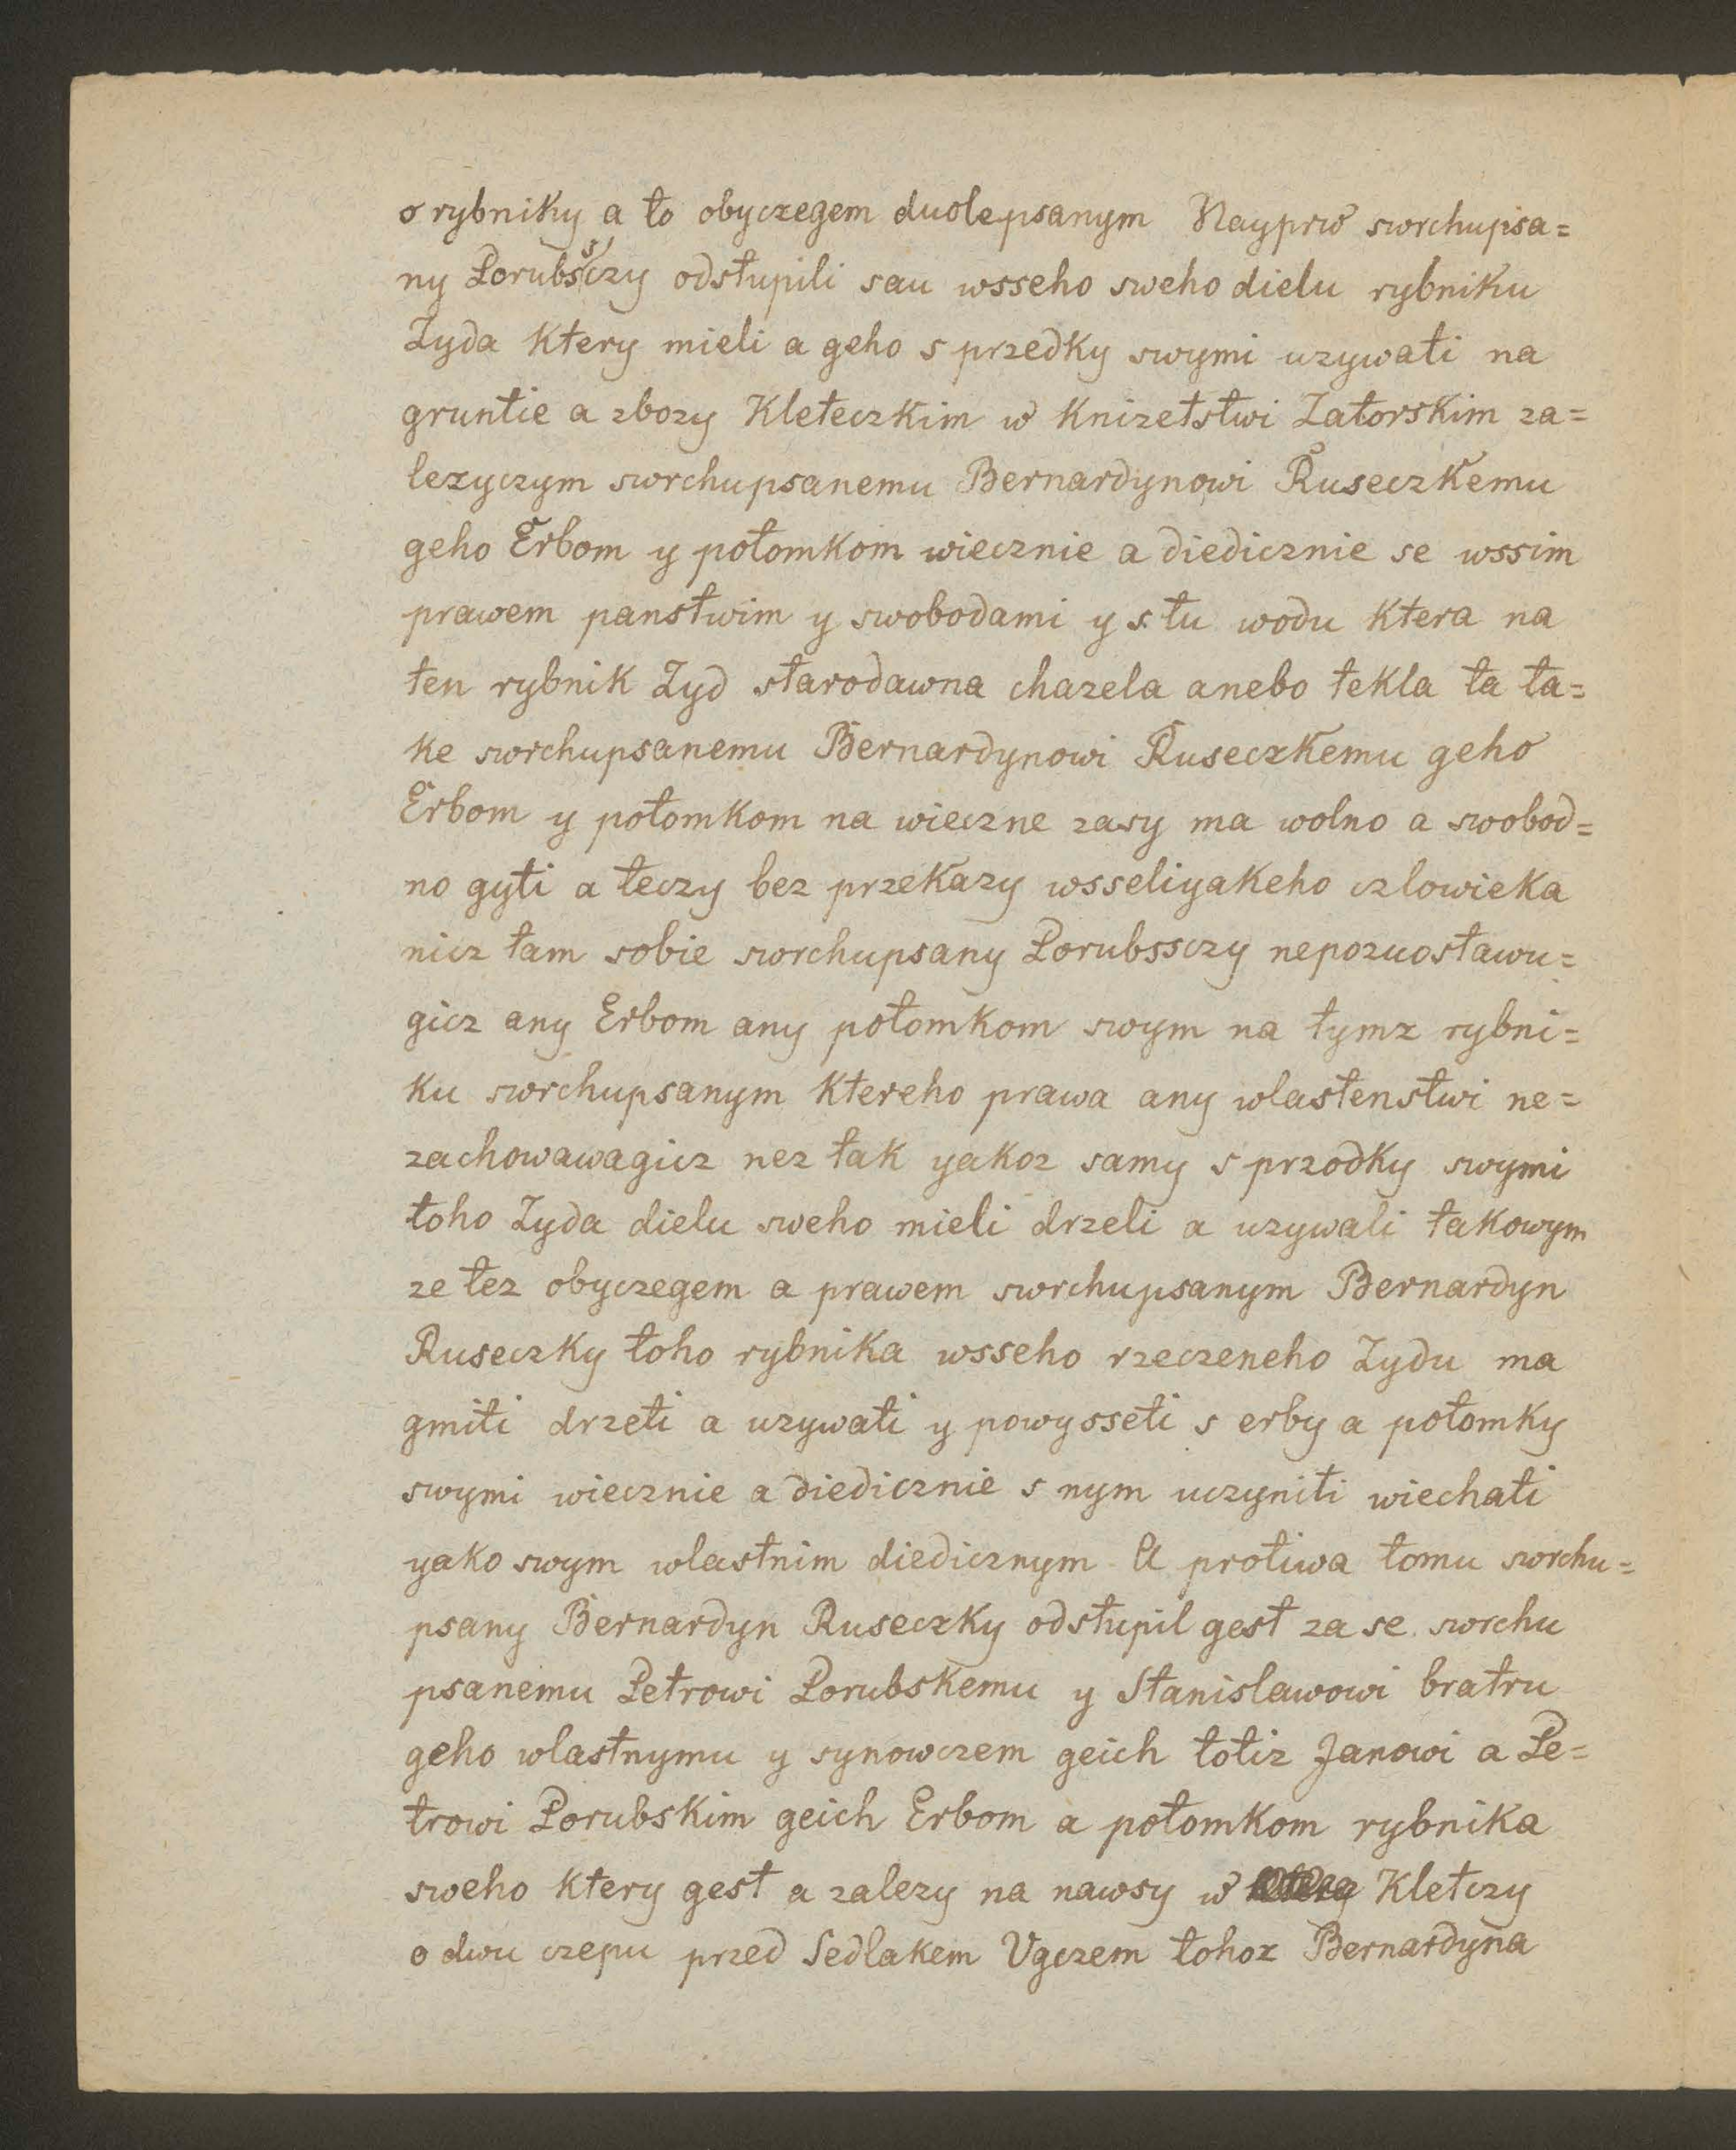 o rybniky a to obyczegem duolepsanym Nayprw swrchupisa=
ny Porubssczy odstupili sau wsseho sweho dielu rybniku
Zyda ktery mieli a geho s przedky swymi uzywati na
gruntie a zbozy Kleteczkim w Knizetstwi Zatorskim za=
lezyczym swrchupsanemu Bernardynowi Ruseczkemu
geho Erbom y potomkom wiecznie a diedicznie se wssim
prawem panstwim y swobodami y s tu wodu ktera na
ten rybnik Zyd starodawna chazela anebo tekla ta ta=
ke swrchupsanemu Bernardynowi Ruseczkemu geho
Erbom y potomkom na wieczne zasy ma wolno a swobod=
no gyti a teczy bez przekazy wsseliyakeho czlowieka
nicz tam sobie swrchupsany Porubssczy nepozuostawu=
gicz any Erbom any potomkom swym na tymz rybni=
ku swrchupsanym ktereho prawa any wlastenstwi ne=
zachowawagicz nez tak yakoz samy s przodky swymi
toho Zyda dielu sweho mieli drzeli a uzywali takowym
ze tez obyczegem a prawem swrchupsanym Bernardyn
Ruseczky toho rybnika wsseho rzeczeneho Zydu ma
gmiti drzeti a uzywati y powysseti s erby a potomky
swymi wiecznie a diedicznie s nym uczyniti wiechati
yako swym wlastnim diedicznym A protiwa tomu swrchu=
psany Bernardyn Ruseczky odstupil gest za se swrchu
psanemu Petrowi Porubskemu y Stanislawowi bratru
geho wlastnymu y synowczem geich totiz Janowi a Pe=
trowi Porubskim geich Erbom a potomkom rybnika
sweho ktery gest a zalezy na nawsy w Kletczy
o dwu czepu przed Sedlakem Vgczem tohoz Bernardyna